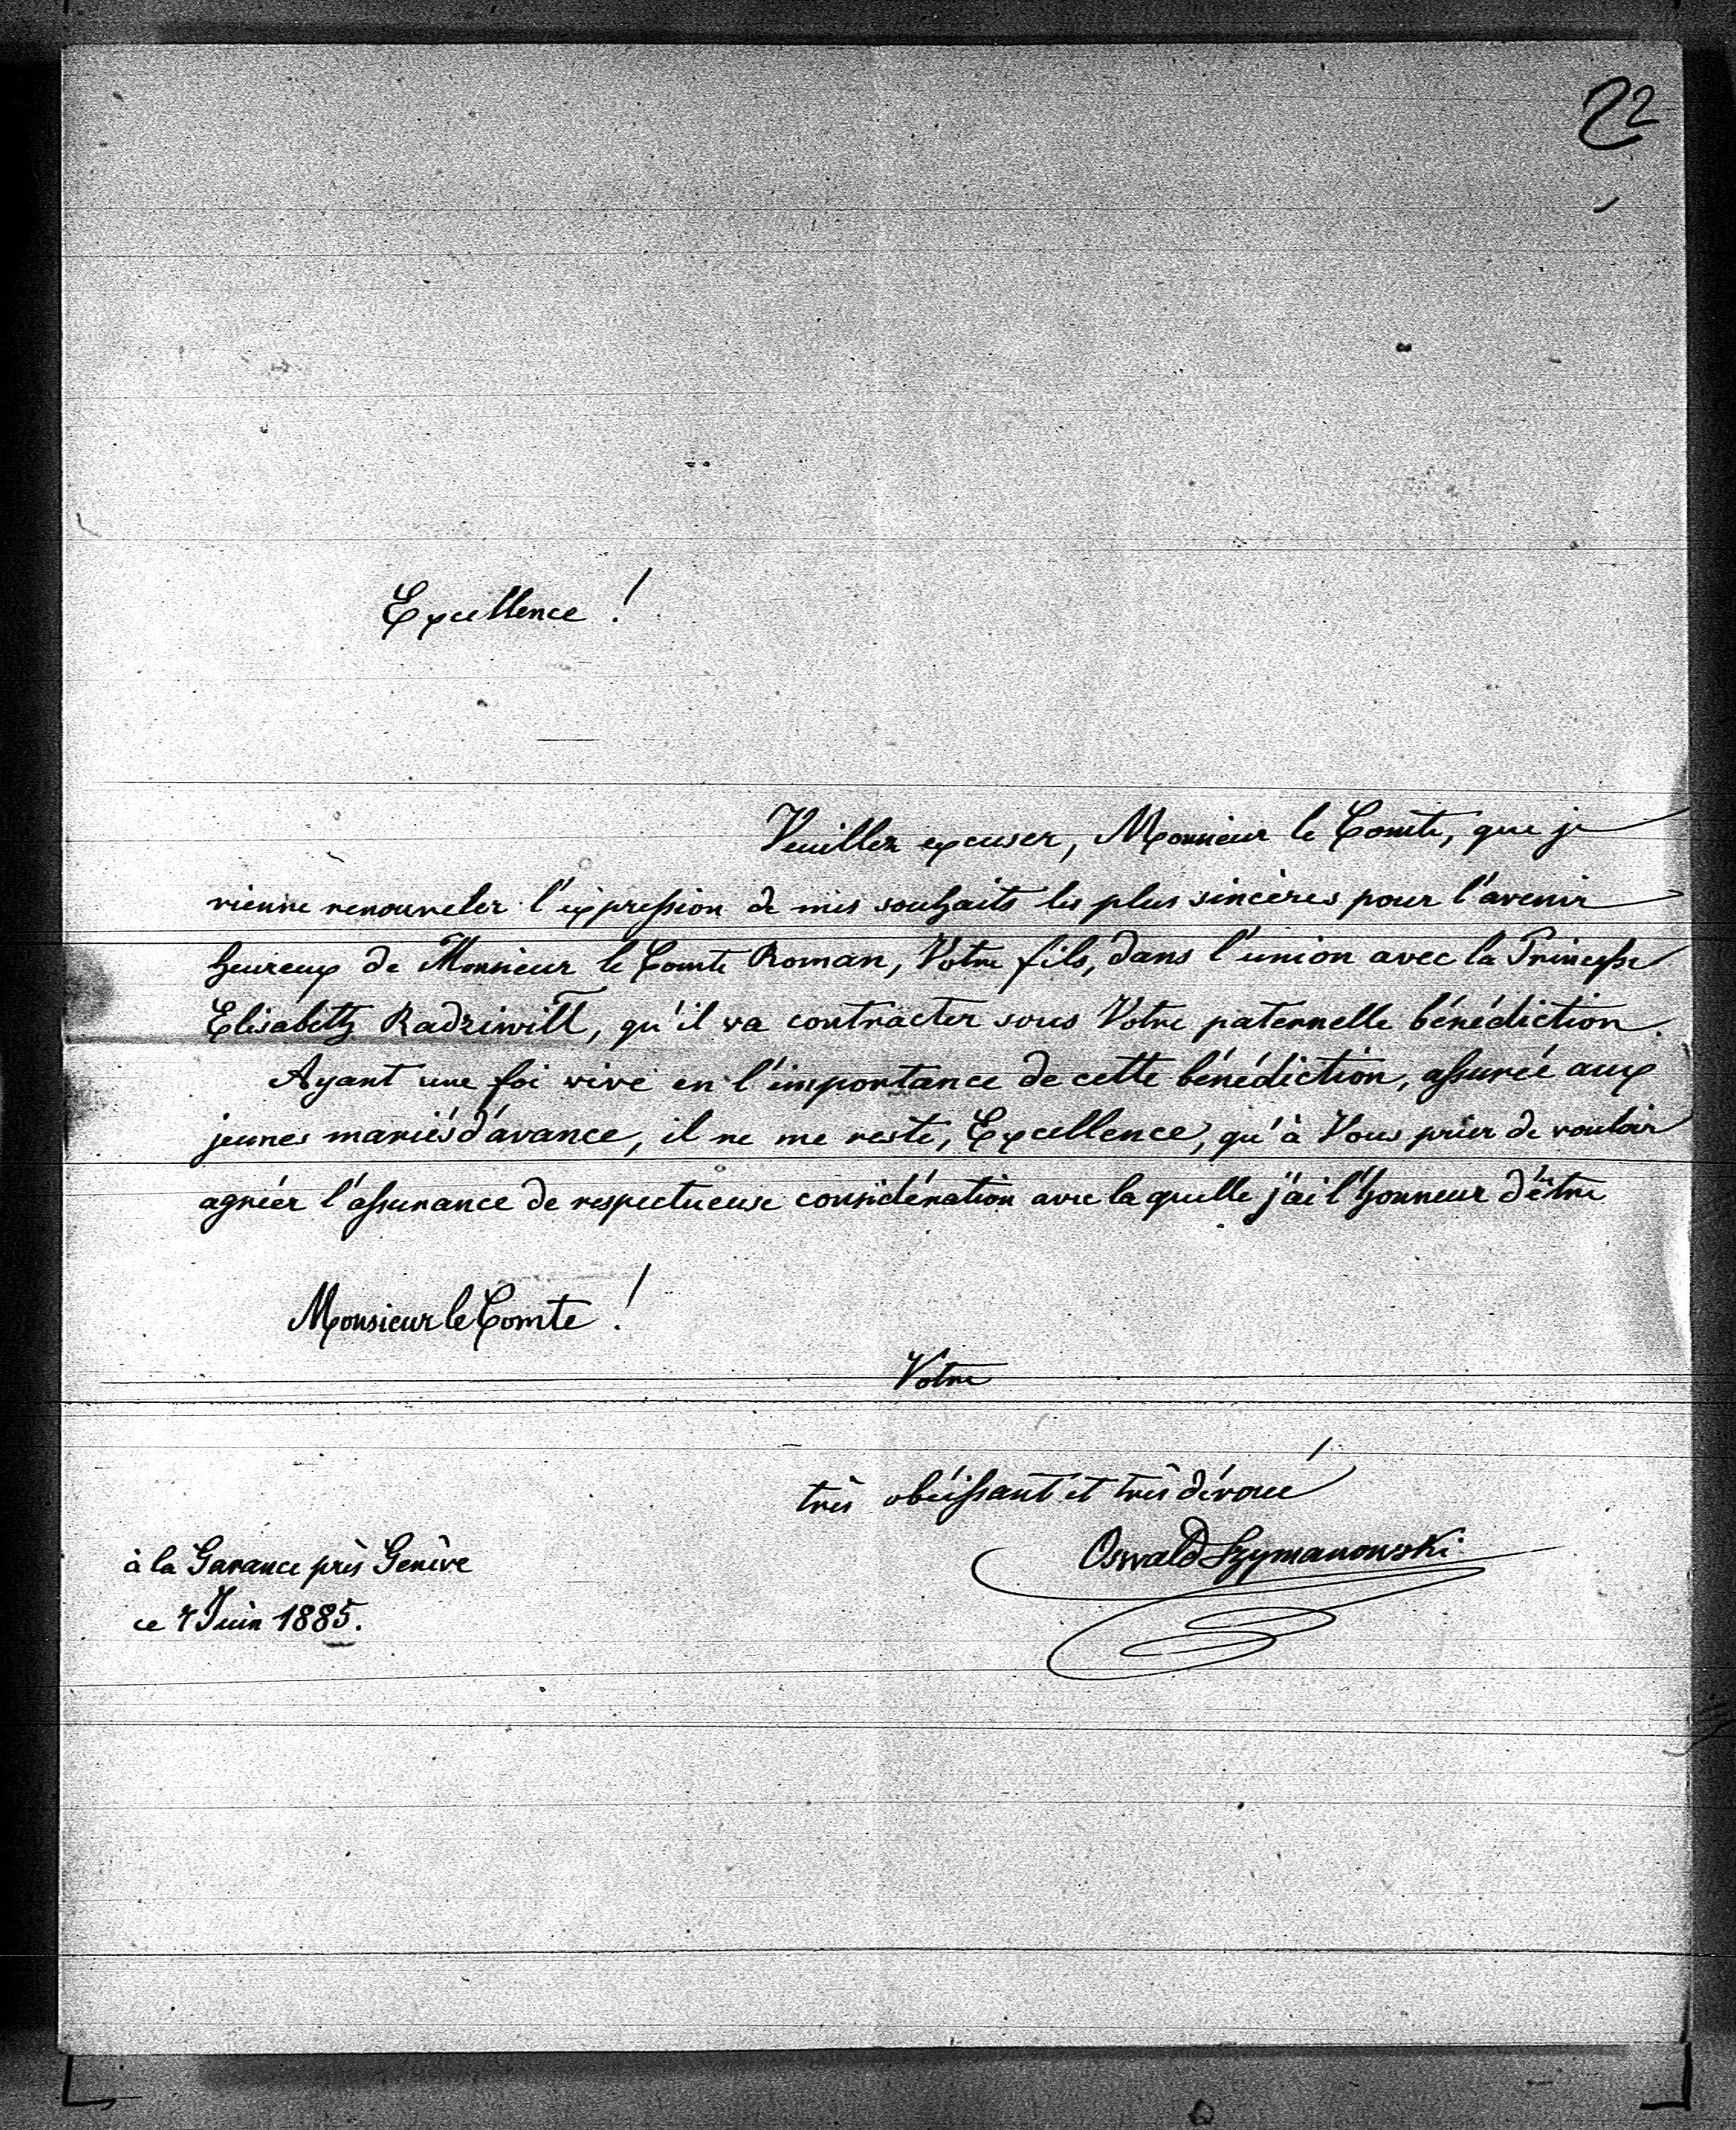 22
Excellence !
Veuillez excuser, Monsieur le Comte, que je
vienne renouveler l'expression de mes souhaits les plus sincères pour l'avenir
heureux de Monsieur le Comte Roman, Votre fils, dans l'union avec la Princesse
Elisabeth Radziwiłł, qu'il va contracter sous Votre paternelle bénédiction.
Ayant une foi vive en l'importance de cette bénédiction, assurée aux
jeunes mariés d'avance, il ne me reste, Excellence, qu'à Vous prier de vouloir
agréer l'assurance de respectueuse considération avec la quelle j'ai l'honneur d'être
Monsieur le Comte !
Votre
très obéissant et très dévoué
Oswald Szymanowski
à la Gavance près Genève
ce 7 Juin 1885.